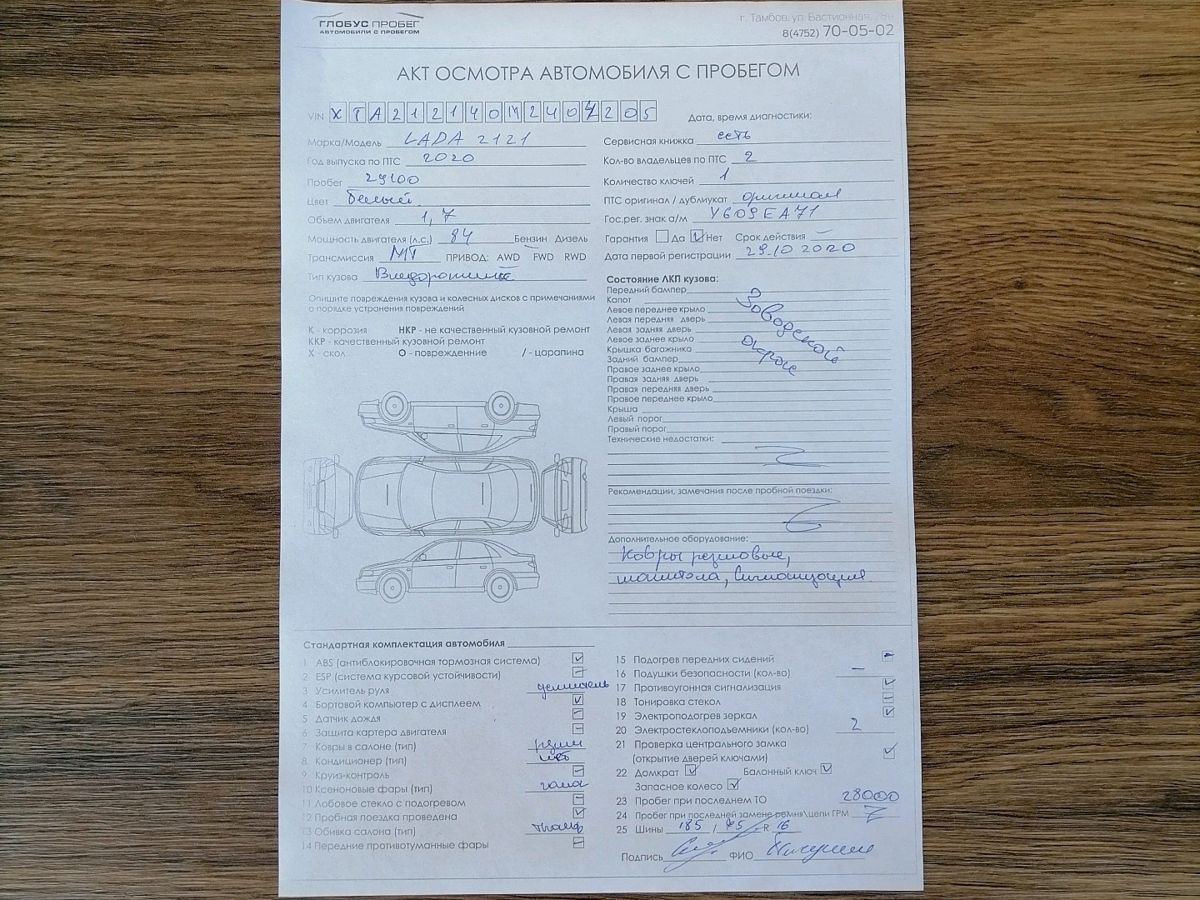 ГЛОБУС ПРОБЕГ
АВТОМОБИЛИ С ПРОБЕГОМ
г. Тамбов, ул. Бастионная,
8(4752) 70-05-02
АКТ ОСМОТРА АВТОМОБИЛЯ С ПРОБЕГОМ
VIN XTA212140M2407205
Дата, время диагностики:
Марка/Модель LADA 2121
Год выпуска по ПТС 2020
Пробег 29100
Цвет Белый
Объем двигателя 1,7
Мощность двигателя (л.с.) 84 Бензин Дизель
Трансмиссия МТ ПРИВОД: AWD FWD RWD
Тип кузова Внедорожник
Сервисная книжка есть
Кол-во владельцев по ПТС 2
Количество ключей 1
ПТС оригинал / дубликат оригинал
Гос.рег. знак а/м У609ЕА71
Гарантия Да Нет Срок действия —
Дата первой регистрации 29.10 2020
Опишите повреждения кузова и колесных дисков с примечаниями
о порядке устранения повреждений
К - коррозия НКР - не качественный кузовной ремонт
ККР - качественный кузовной ремонт
Х - скол О - повреждение / - царапина
Состояние ЛКП кузова:
Передний бампер
Капот
Левое переднее крыло
Левая передняя дверь
Левая задняя дверь
Левое заднее крыло
Крышка багажника
Задний бампер
Правое заднее крыло
Правая задняя дверь
Правая передняя дверь
Правое переднее крыло
Крыша
Левый порог
Правый порог
Заводской
окрас
Технические недостатки:
Рекомендации, замечания после пробной поездки:
Дополнительное оборудование:
Ковры резиновые,
магнитола, Сигнализация
Стандартная комплектация автомобиля
1 ABS (антиблокировочная тормозная система)
2 ESP (система курсовой устойчивости)
3 Усилитель руля усилитель
4 Бортовой компьютер с дисплеем
5 Датчик дождя
6 Защита картера двигателя
7 Ковры в салоне (тип) резин
8 Кондиционер (тип)
9 Круиз-контроль
10 Ксеноновые фары (тип) галог
11 Лобовое стекло с подогревом
12 Пробная поездка проведена
13 Обивка салона (тип)
14 Передние противотуманные фары
15 Подогрев передних сидений
16 Подушки безопасности (кол-во) —
17 Противоугонная сигнализация
18 Тонировка стекол
19 Электроподогрев зеркал
20 Электростеклоподъемники (кол-во) 2
21 Проверка центрального замка
(открытие дверей ключами)
22 Домкрат Балонный ключ
Запасное колесо
23 Пробег при последнем ТО 28000
24 Пробег при последней замене ремня\цепи ГРМ
25 Шины 185 / 75 R 16
Подпись ФИО